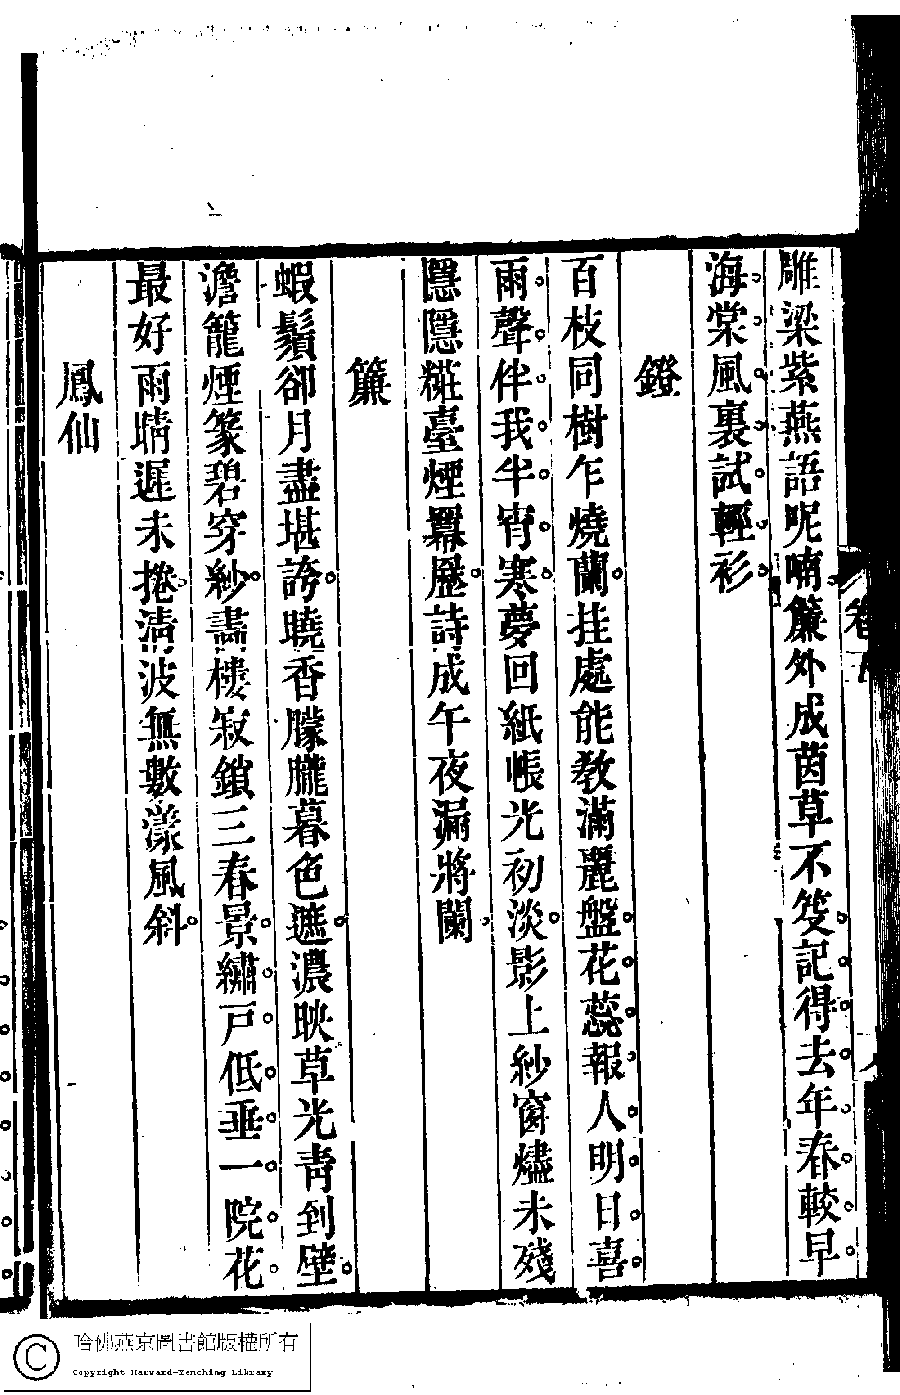 雕梁紫燕語呢喃簾外成茵草不芟記得去年春較早
海棠風裏試輕衫
鐙
百枝同樹乍燒蘭挂處能教滿麗盤花蕊報人明日喜
雨聲伴我半宵寒夢回紙帳光初淡影上紗窗燼未殘
隱隱糚臺煙羃歷詩成午夜漏將闌
簾
蝦鬚卻月盡堪誇曉香朦朧暮色遮濃映草光靑到壁
澹籠煙篆碧穿紗畵樓寂鎖三春景繡戸低垂一院花
最好雨晴遲未捲淸波無數漾風斜
鳳仙
哈佛燕京圖書館版權所有
Copyright Harvard-Yenching Library